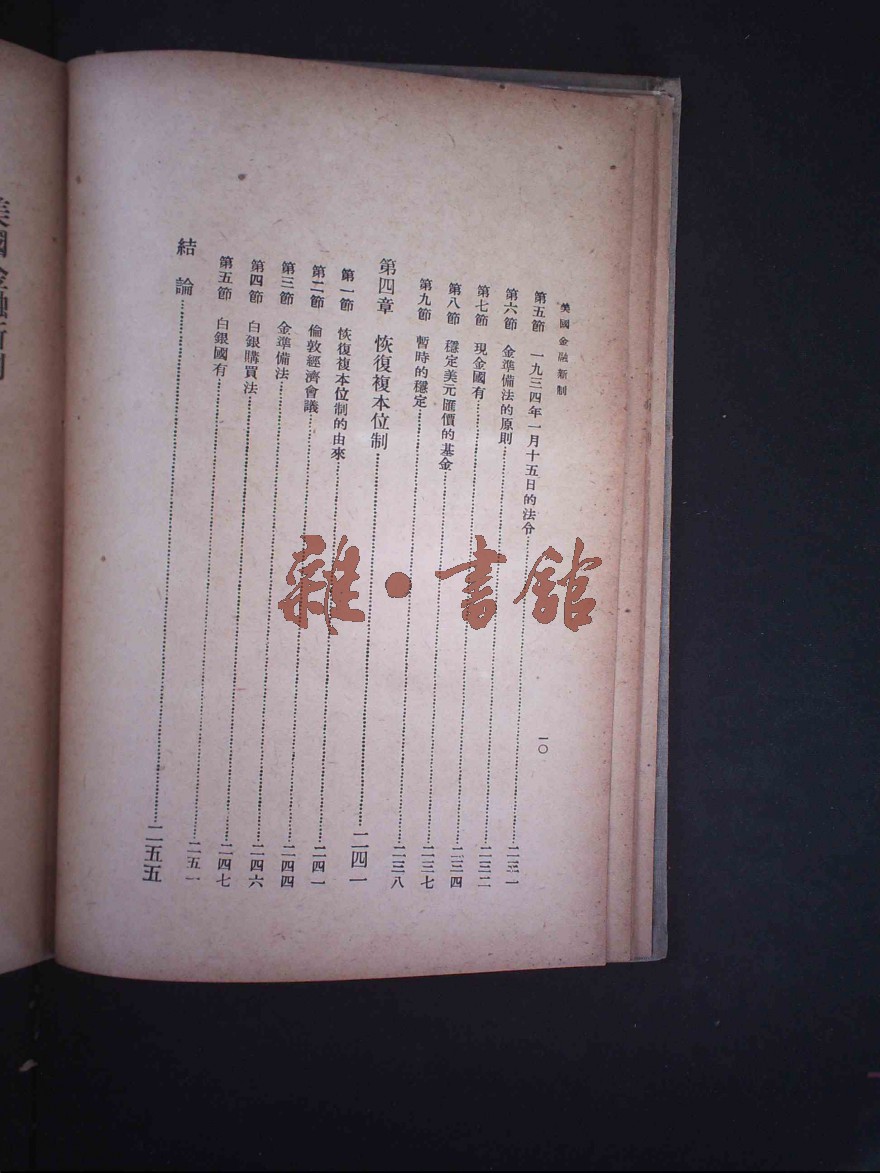 美國金融新制
一〇
第五節 一九三四年一月十五日的法令……二三一
第六節 金準備法的原則……二三二
第七節 現金國有……二三二
第八節 穩定美元匯價的基金……二三四
第九節 暫時的穩定……二三七
第四章 恢復複本位制……二四一
第一節 恢復複本位制的由來……二四一
第二節 倫敦經濟會議……二四一
第三節 金準備法……二四四
第四節 白銀購買法……二四六
第五節 白銀國有……二四七
結論……二五五
雜·書館
美國金融新制